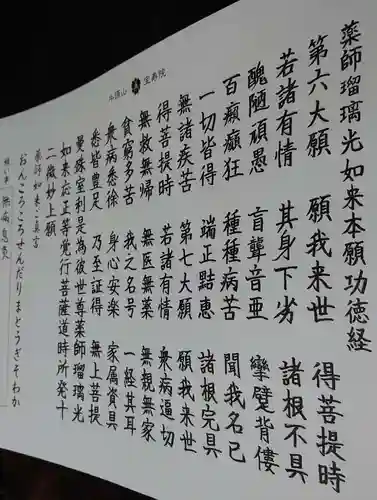 薬師瑠璃光如来本願功徳経
第六大願 願我来世 得菩提時
若諸有情 其身下劣 諸根不具
醜陋頑愚 盲聾音亜 攣躄背僂
百癩癲狂 種種病苦 聞我名已
一切皆得 端正黠恵 諸根完具
無諸疾苦 第七大願 願我来世
得菩提時 若諸有情 衆病逼切
無救無帰 無医無薬 無親無家
貧窮多苦 我之名号 一経其耳
衆病悉除 身心安楽 家属資具
悉皆豊足 乃至証得 無上菩提
曼殊室利是為彼世尊薬師瑠璃光
如来応正等覚行菩薩道時所発十
二微妙上願
薬師如来ご真言
おんころころせんだりまとうぎそわか
願い事 無病息災
牛頭山 宝寿院